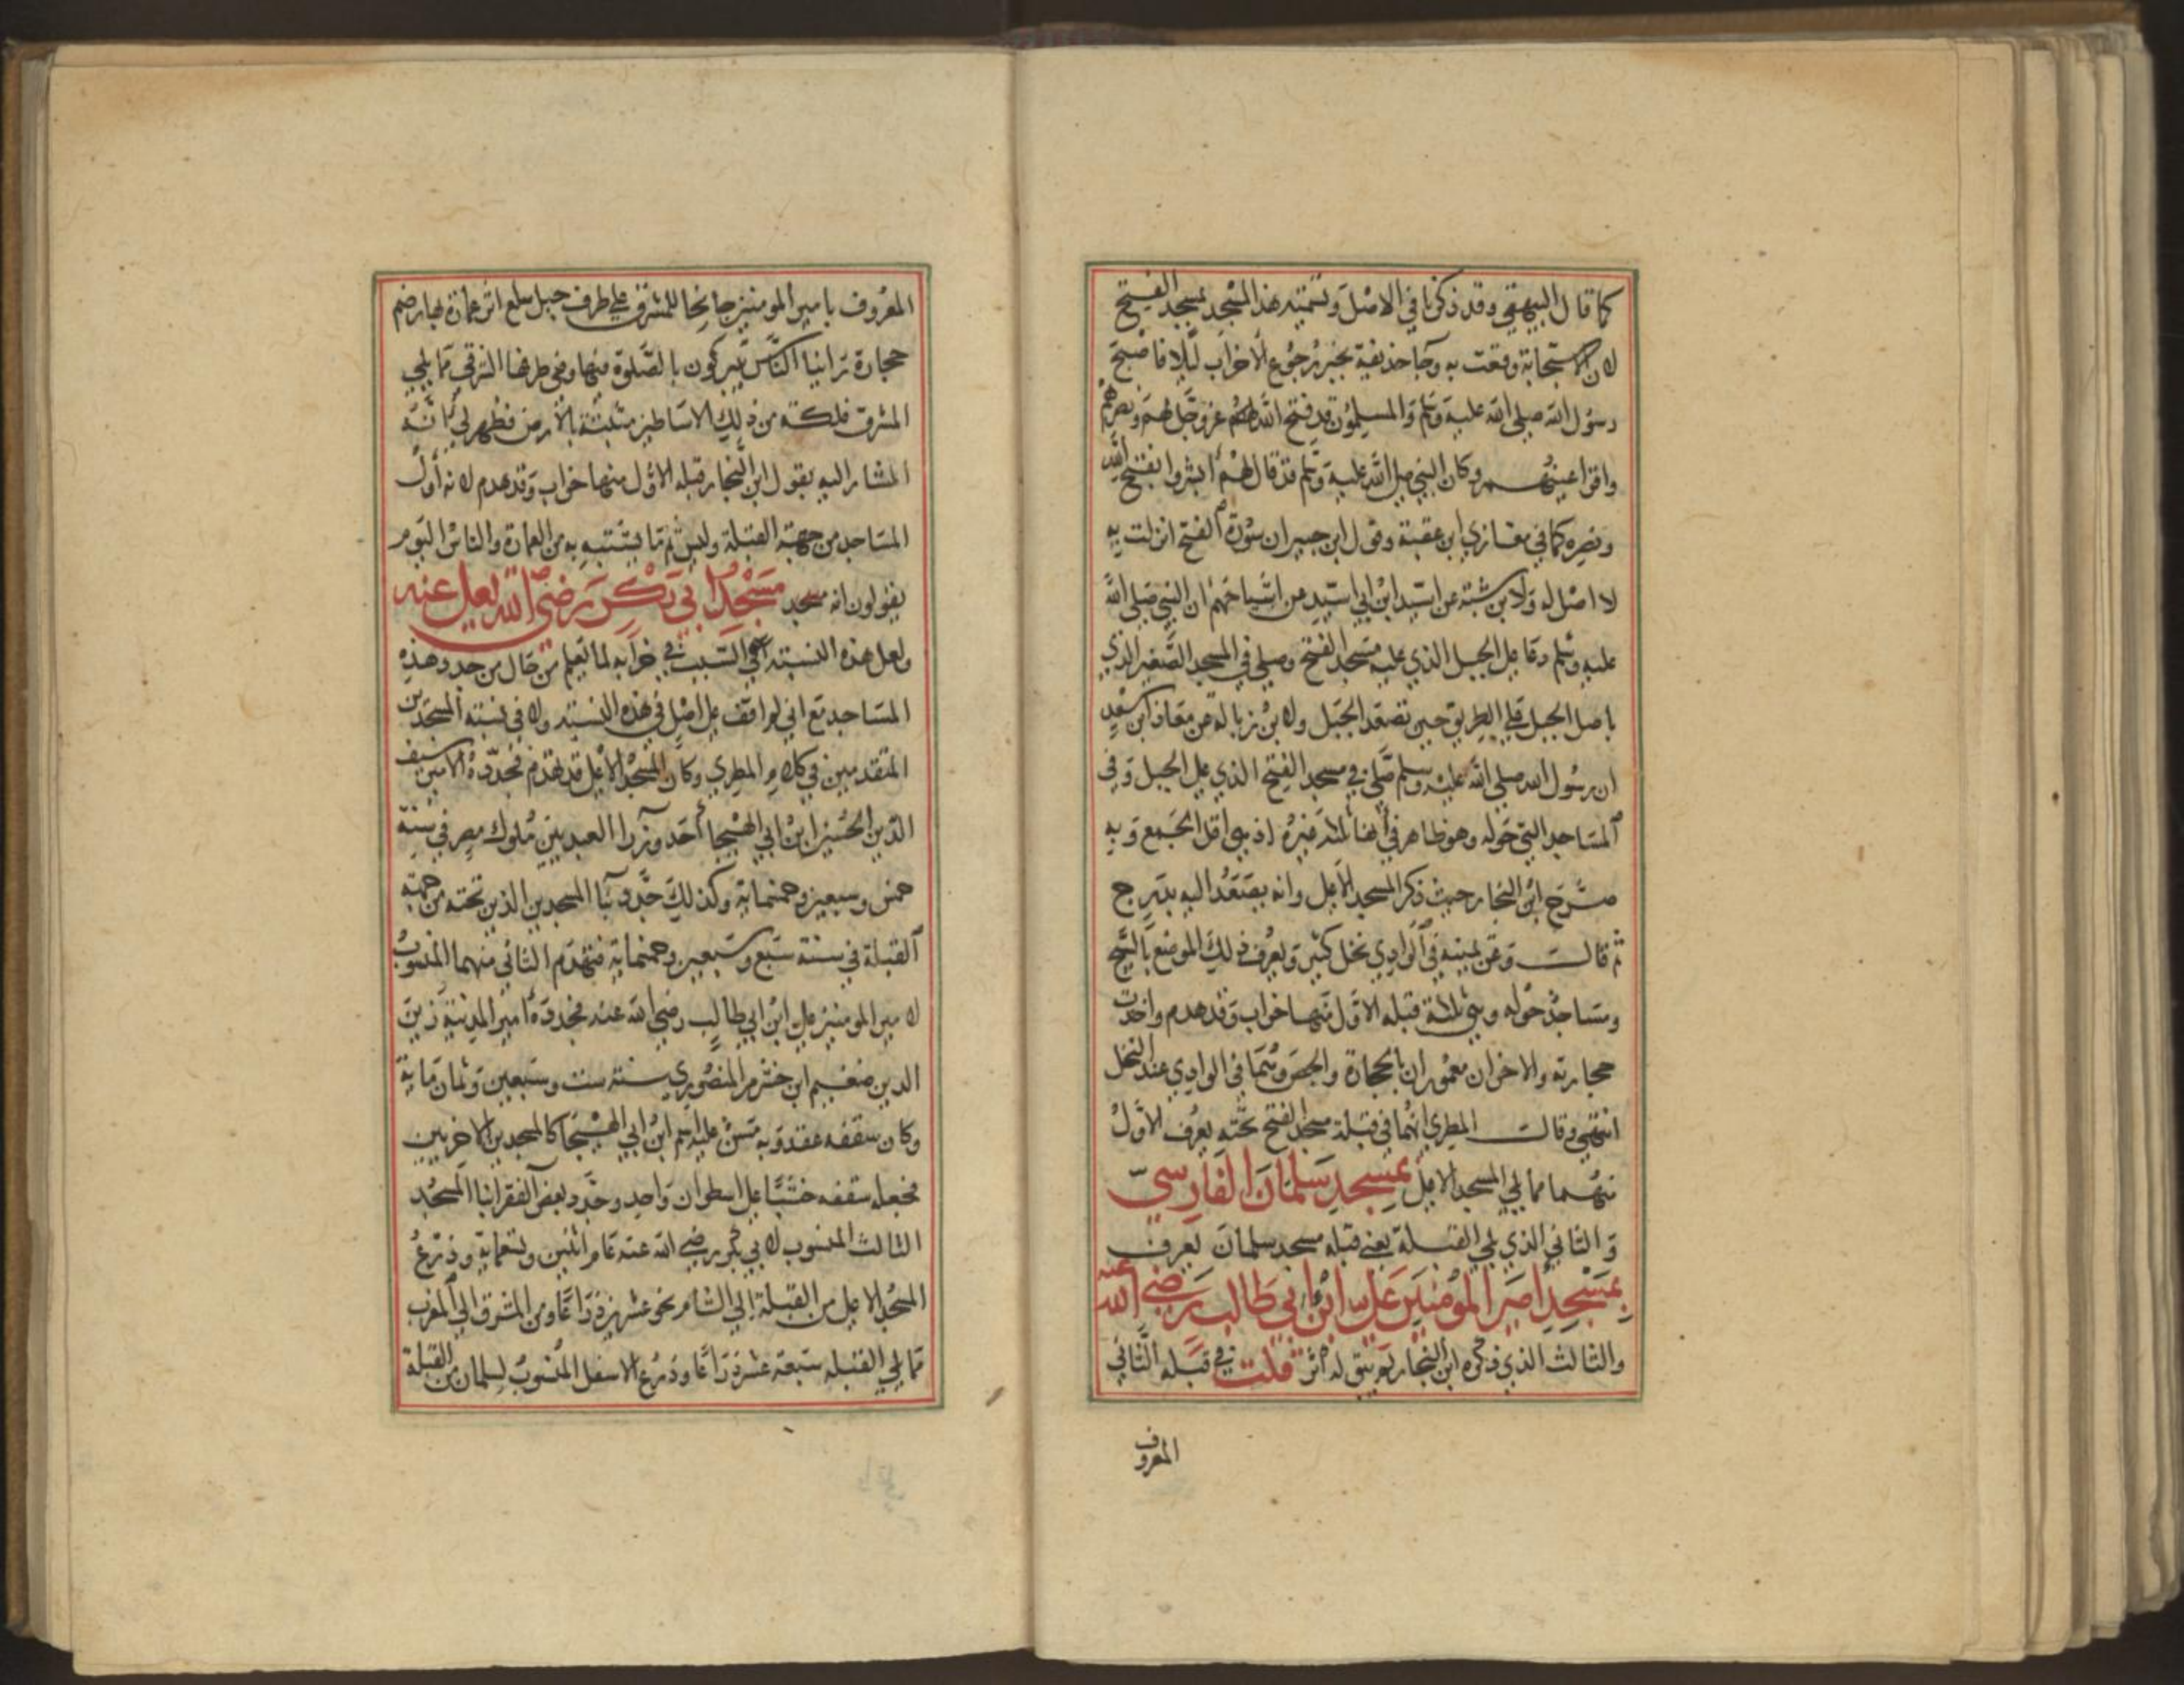 كما قال البيهقي وقد ذكرنا في الاصل وتسميته هذا المسجد بمسجد الفتح
لان الاستجابة وقعت به وجا حذيفة بخبر رجوع الاحزاب ليلا فاصبح
رسول الله صلى الله عليه وسلم والمسلمون قد فتح الله لهم عز وجل لهم ونصرهم
واقر اعينهم وكان النبي صلى الله عليه وسلم قد قال لهم ابشروا بفتح الله
ونصره كما في مغازي ابن عقبة وقول ابن جبير ان سورة الفتح انزلت به
لا اصل له ولابن شبة عن اسيد ابن ابي اسيد عن اشياخهم ان النبي صلى الله
عليه وسلم دعا على الجبل الذي عليه مسجد الفتح وصلى في المسجد الصغير الذي
باصل الجبل على الطريق حين تصعد الجبل ولابن زبالة عن معاذ ابن سعد
ان رسول الله صلى الله عليه وسلم صلى في مسجد الفتح الذي على الجبل وفي
المساجد التي حوله وهو ظاهر في انها ثلثة غيره اذ هي اقل الجمع وبه
صرح ابن النجار حيث ذكر المسجد الاعلى وانه يصعد اليه بدرج
ثم قال وعن يمينه في الوادي نخل كثير ويعرف ذلك الموضع بالسيح
ومساجد حوله وهي ثلثة قبله الاول منها خراب وقد هدم واخذت
حجارته والاخران معموران بالحجارة والجص وهما في الوادي عند النخل
انتهى وقال المطري انهما في قبلة مسجد الفتح تحته يعرف الاول
منهما مما يلي المسجد الاعلى بمسجد سلمان الفارسي
والثاني الذي يلي القبلة يعني قبلة مسجد سلمان يعرف
بمسجد امير المؤمنين علي ابن ابي طالب رضي الله عنه
والثالث الذي ذكره ابن النجار لم يبق له اثر قلت في قبلة الثاني
المعروف
المعروف بامير المومنين جانحا للمشرق على طرف جبل سلع اثر عمارة بها رضم
حجارة راينا الناس يتبركون بالصلوة فيها وفي طرفها الشرقي مما يلي
المشرق فلكة من ذلك الاساطين مثبتة بالارض فظهر لي انه
المشار اليه بقول ابن النجار قبله الاول منها خراب وقد هدم لانه اول
المساجد من جهة القبلة وليس ثم ما يشتبه به من العمارة والناس اليوم
يقولون انه مسجد مسجد ابي بكر رضي الله تعالى عنه
ولعل هذه النسبة هي السبب في خرابه لما تعلم من حال من جدد هذه
المساجد مع اني لم اقف على اصل في هذه النسبة ولا في نسبة المسجدين
المتقدمين في كلام المطري وكان المسجد الاعلى قد تهدم فجدده الامير سيف
الدين الحسين ابن ابي الهيجا احد وزرا العبيديين ملوك مصر في سنة
خمس وسبعين وخمسماية وكذلك جدد بنا المسجدين الذين تحته من جهة
القبلة في سنة سبع وسبعين وخمسماية فتهدم الثاني منهما المنسوب
لامير المومنين علي ابن ابي طالب رضي الله عنه فجدده امير المدينة زين
الدين ضغيم ابن خشرم المنصوري سنة ست وسبعين وثمان ماية
وكان سقفه عقد وبه مسن عليه اسم ابن ابي الهيجا كالمسجدين الاخريين
فجعل سقفه خشبا على اسطوان واحد وجدد بعض الفقرا بنا المسجد
الثالث المنسوب لابي بكر رضي الله عنه عام اثنين وتسعماية وذرع
المسجد الاعلى من القبلة الى الشام نحو عشرين ذراعا ومن المشرق الى المغرب
مما يلي القبلة سبعة عشر ذراعا وذرع الاسفل المنسوب لسلمان من القبلة